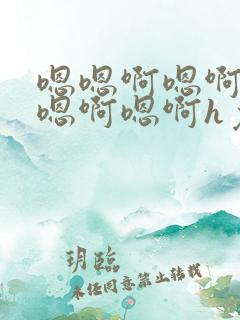 嗯嗯啊嗯啊
嗯啊嗯啊h
玥臨
未经同意禁止转载